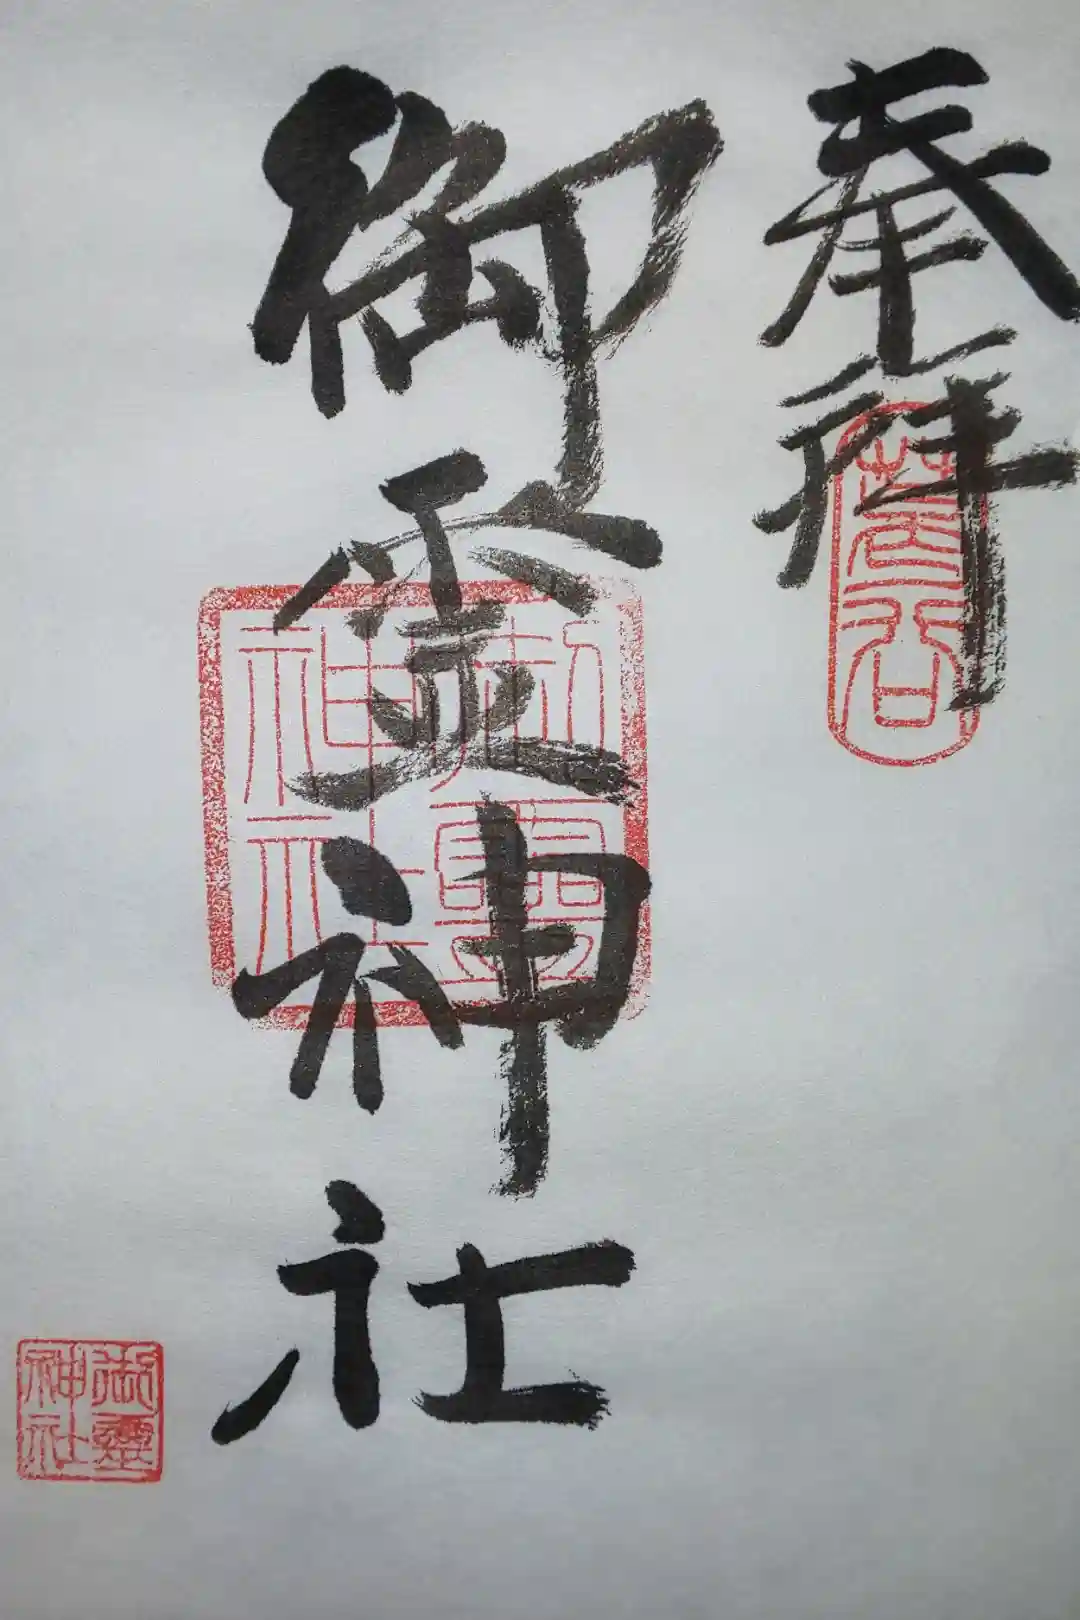 奉拝
御霊神社
葛公
御霊神社
御霊神社